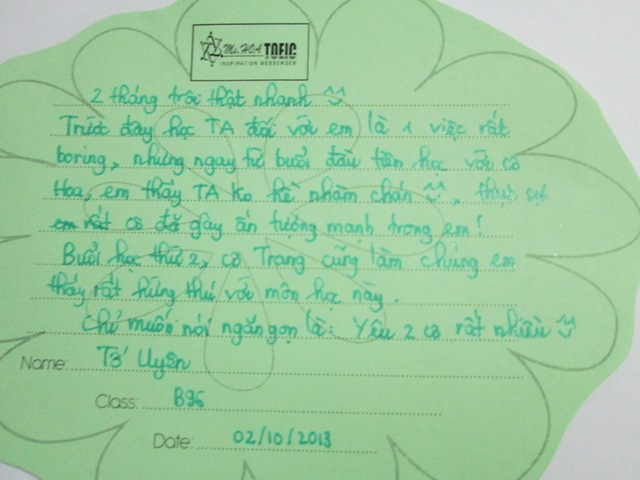 Ms. HOA TOEIC
INSPIRATION MESSENGER
2 tháng trôi thật nhanh ^^
Trước đây học TA đối với em là 1 việc rất
boring, nhưng ngay từ buổi đầu tiên học với cô
Hoa, em thấy TA ko hề nhàm chán ^^, thực sự
em rất cô đã gây ấn tượng mạnh trong em!
Buổi học thứ 2, cô Trang cũng làm chúng em
thấy rất hứng thú với môn học này.
Chỉ muốn nói ngắn gọn là: Yêu 2 cô rất nhiều ^^
Name: Tố Uyên
Class: B36
Date: 02/10/2013